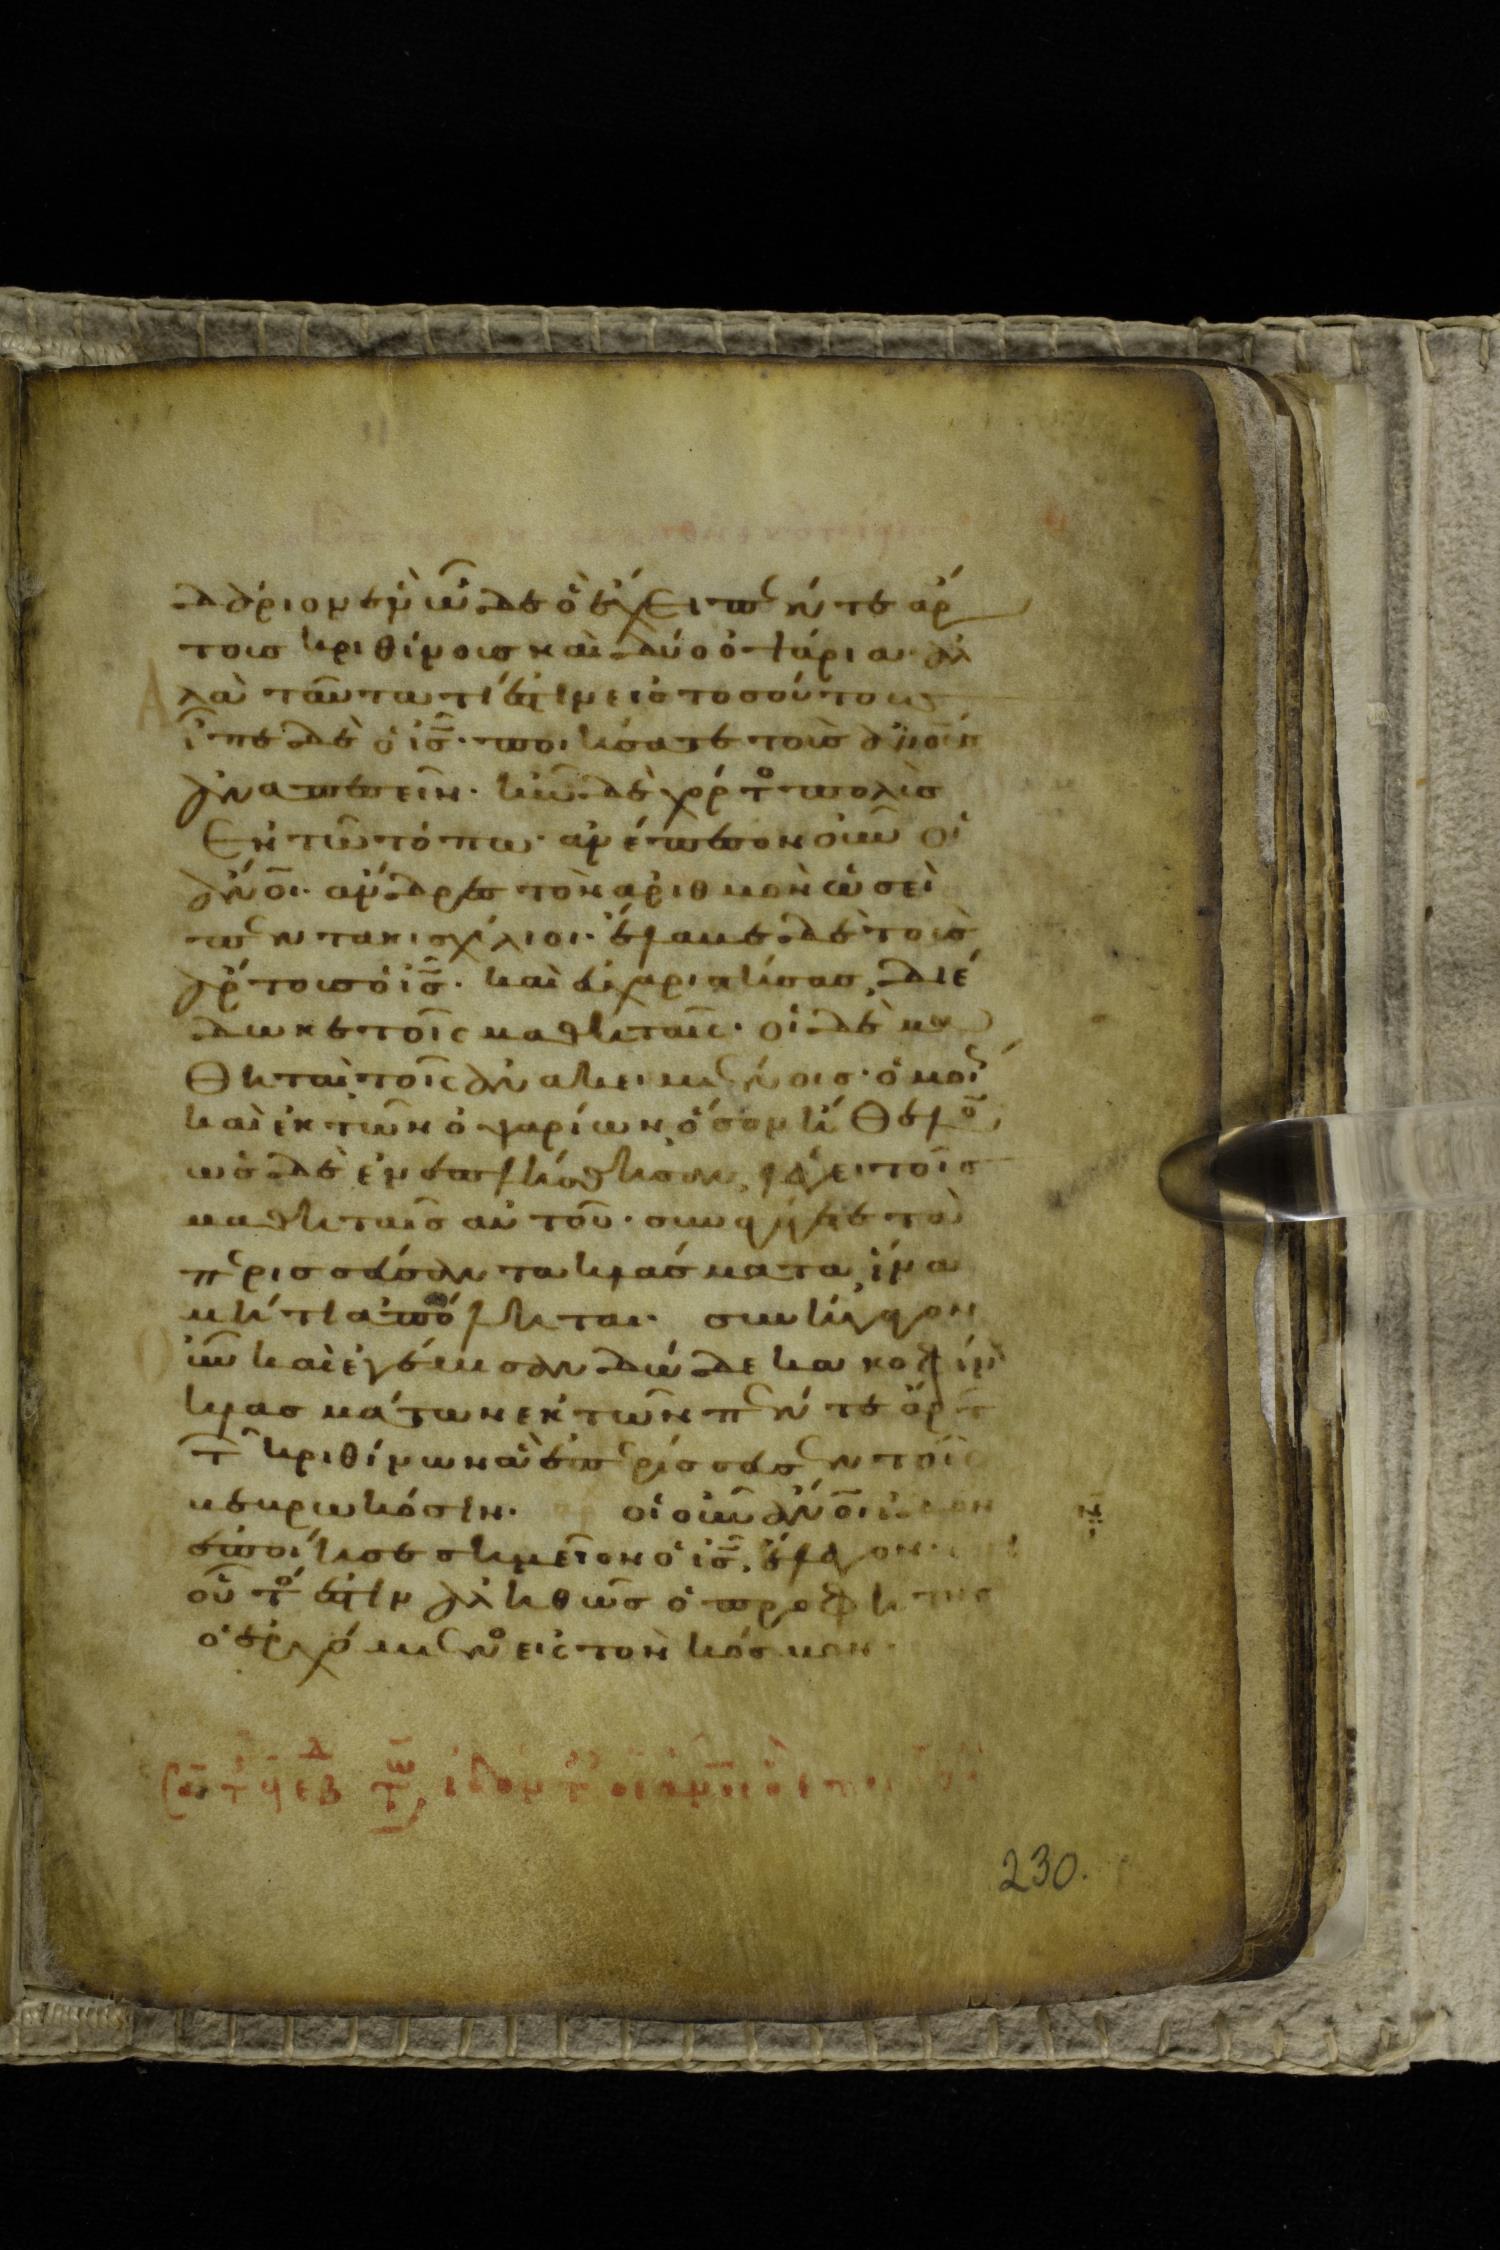 δάριον ἓν ὧδε ὃ ἔχει πέντε ἄρ
τους κριθίνους καὶ δύο ὀψάρια· ἀλ
λὰ ταῦτα τί ἐστιν εἰς τοσούτους
εἶπε δὲ ὁ ις̅· ποιήσατε τοὺς ἀνο̅υς
ἀναπεσεῖν· ἦν δὲ χόρτο πολὺς
ἐν τῷ τόπῳ· ἀνέπεσον οὖν οἱ
ἀνο̅ι· ἄνδρες τὸν ἀριθμὸν ὡσεὶ
πεντακισχίλιοι· ἔλαβε δὲ τοὺς
ἄρτους ὁ ις̅· καὶ εὐχαριστήσας, διέ
δωκε τοῖς μαθηταῖς· οἱ δὲ μα
θηταὶ τοῖς ἀνακειμένοις· ὁμοί
καὶ ἐκ τῶν ὀψαρίων ὅσον ἤθελο̅
ὡς δὲ ἐνεπλήσθησαν, λέγει τοῖς
μαθηταῖς αὐτοῦ· συναγάγετε τὰ
περισσεύσαντα κλάσματα, ἵνα
μή τι ἀπόληται· συνήγαγον
οὖν καὶ ἐγέμισαν δώδεκα κοφίν
κλασμάτων ἐκ τῶν πέντε ἄρτ
τ κριθίνων ἃ ἐπερίσσευσεν τοῖς
βεβρωκόσιν· οἱ οὖν ἀνο̅ι ἰδόντες
ἐποίησε σημεῖον ὁ ις̅, ἔλεγον·
οὗτο ἐστὶν ἀληθῶς ὁ προφήτης
ὁ ἐρχόμενο εἰς τὸν κόσμον·
230.